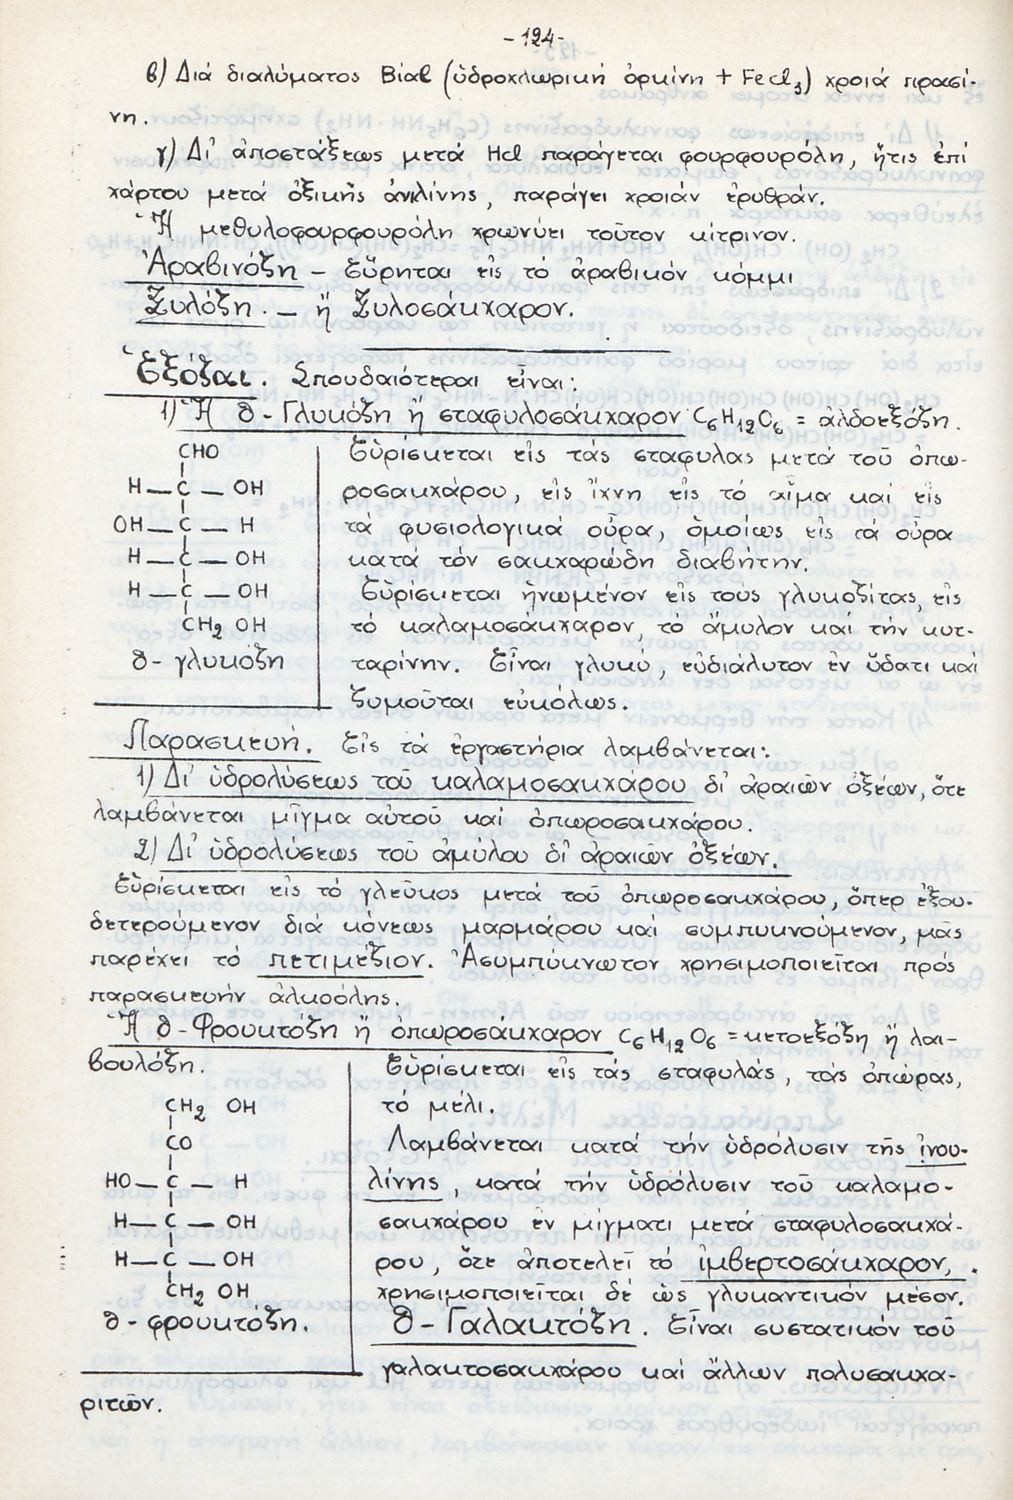 -124-
β) Διά διαλύματος Βίαl (ὑδροχλωρική ὀρκίνη + Fecl3) χροιά πρασί-
νη.
γ) Δι' ἀποστάξεως μετά Hcl παράγεται φουρφουρόλη, ἥτις ἐπί
χάρτου μετά ὀξικῆς ἀνιλίνης, παράγει χροιάν ἐρυθράν.
Ἡ μεθυλοφουρφουρόλη χρωνύει τοῦτον κίτρινον.
Ἀραβινόζη – Εὕρηται εἰς τό ἀραβικόν κόμμι
Ξυλόζη. – ἤ Ξυλοσάκχαρον.
Ἑξόζαι. Σπουδαιότεραι εἶναι:
1) Ἡ δ-Γλυκόζη ἤ σταφυλοσάκχαρον C6H12O6 = ἀλδοεξόζη.
CHO
H – C – OH
OH – C – H
H – C – OH
H – C – OH
CH2 OH
δ- γλυκόζη
Εὑρίσκεται εἰς τάς σταφυλάς μετά τοῦ ὀπω-
ροσακχάρου, εἰς ἴχνη εἰς τό αἷμα καί εἰς
τά φυσιολογικά οὖρα, ὁμοίως εἰς τά οὖρα
κατά τόν σακχαρώδη διαβήτην.
Εὑρίσκεται ἡνωμένον εἰς τούς γλυκοζίτας, εἰς
τό καλαμοσάκχαρον, τό ἄμυλον καί τήν κυτ-
ταρίνην. Εἶναι γλυκύ, εὐδιάλυτον ἐν ὕδατι καί
ζυμοῦται εὐκόλως.
Παρασκευή. Εἰς τά ἐργαστήρια λαμβάνεται:
1) Δι' ὑδρολύσεως τοῦ καλαμοσακχάρου δι' ἀραιῶν ὀξέων, ὅτε
λαμβάνεται μῖγμα αὐτοῦ καί ὀπωροσακχάρου.
2) Δι' ὑδρολύσεως τοῦ ἀμύλου δι' ἀραιῶν ὀξέων.
Εὑρίσκεται εἰς τό γλεῦκος μετά τοῦ ὀπωροσακχάρου, ὅπερ ἐξου-
δετερούμενον διά κόνεως μαρμάρου καί συμπυκνούμενον, μᾶς
παρέχει τό πετιμέζιον. Ἀσυμπύκνωτον χρησιμοποιεῖται πρός
παρασκευήν ἀλκοόλης.
Ἡ δ-Φρουκτόζη ἤ ὀπωροσάκχαρον C6H12O6 = κετοεξόζη ἤ λαι-
βουλόζη.
CH2 OH
CO
HO – C – H
H – C – OH
H – C – OH
CH2 OH
δ- φρουκτόζη.
Εὑρίσκεται εἰς τάς σταφυλάς, τάς ὀπώρας,
τό μέλι.
Λαμβάνεται κατά τήν ὑδρόλυσιν τῆς ἰνου-
λίνης, κατά τήν ὑδρόλυσιν τοῦ καλαμο-
σακχάρου ἐν μίγματι μετά σταφυλοσακχά-
ρου, ὅτε ἀποτελεῖ τό ἰμβερτοσάκχαρον,
χρησιμοποιεῖται δέ ὡς γλυκαντικόν μέσον.
δ-Γαλακτόζη. Εἶναι συστατικόν τοῦ
γαλακτοσακχάρου καί ἄλλων πολυσακχα-
ριτῶν.